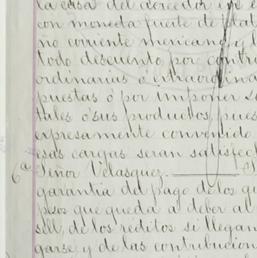 la casa del acreedor
con moneda fuerte de plat
ño corriente mexicano,
todo descuento por contri
ordinarias o extraordina
puestas ó por imponer s
tales ó sus productos, pues
expresamente convenido
esas cargas serán satisfech
Señor Velasquez.
6ª garantia del pago de los qu
pesos que queda á deber al
sell, de los réditos si llegan
garse y de las contribucion